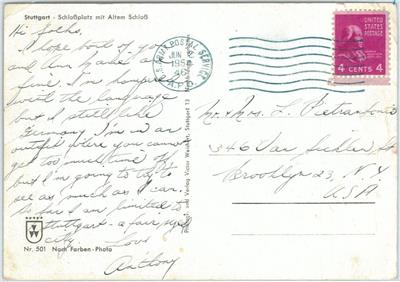 Stuttgart - Schloßplatz mit Altem Schloß
Hi folks,
I hope both of you
and Ann Marie
fine. I'm having
with the language
but I still like
Germany. I'm in an
outfit where you cannot
get too much time off
but I'm going to try to
see as much as I can.
So far I am limited to
Stuttgart - a fair sized
city.
Love
Anthony
Nr. 501 Nach Farben-Photo
und Verlag Victor Stuttgart 13
U.S. ARMY POSTAL SERVICE
JUN
195
A.P.O.
4 CENTS 4
Mr. & Mrs. L.
346 Van Sicklen St.
Brooklyn 23, N.Y.
USA